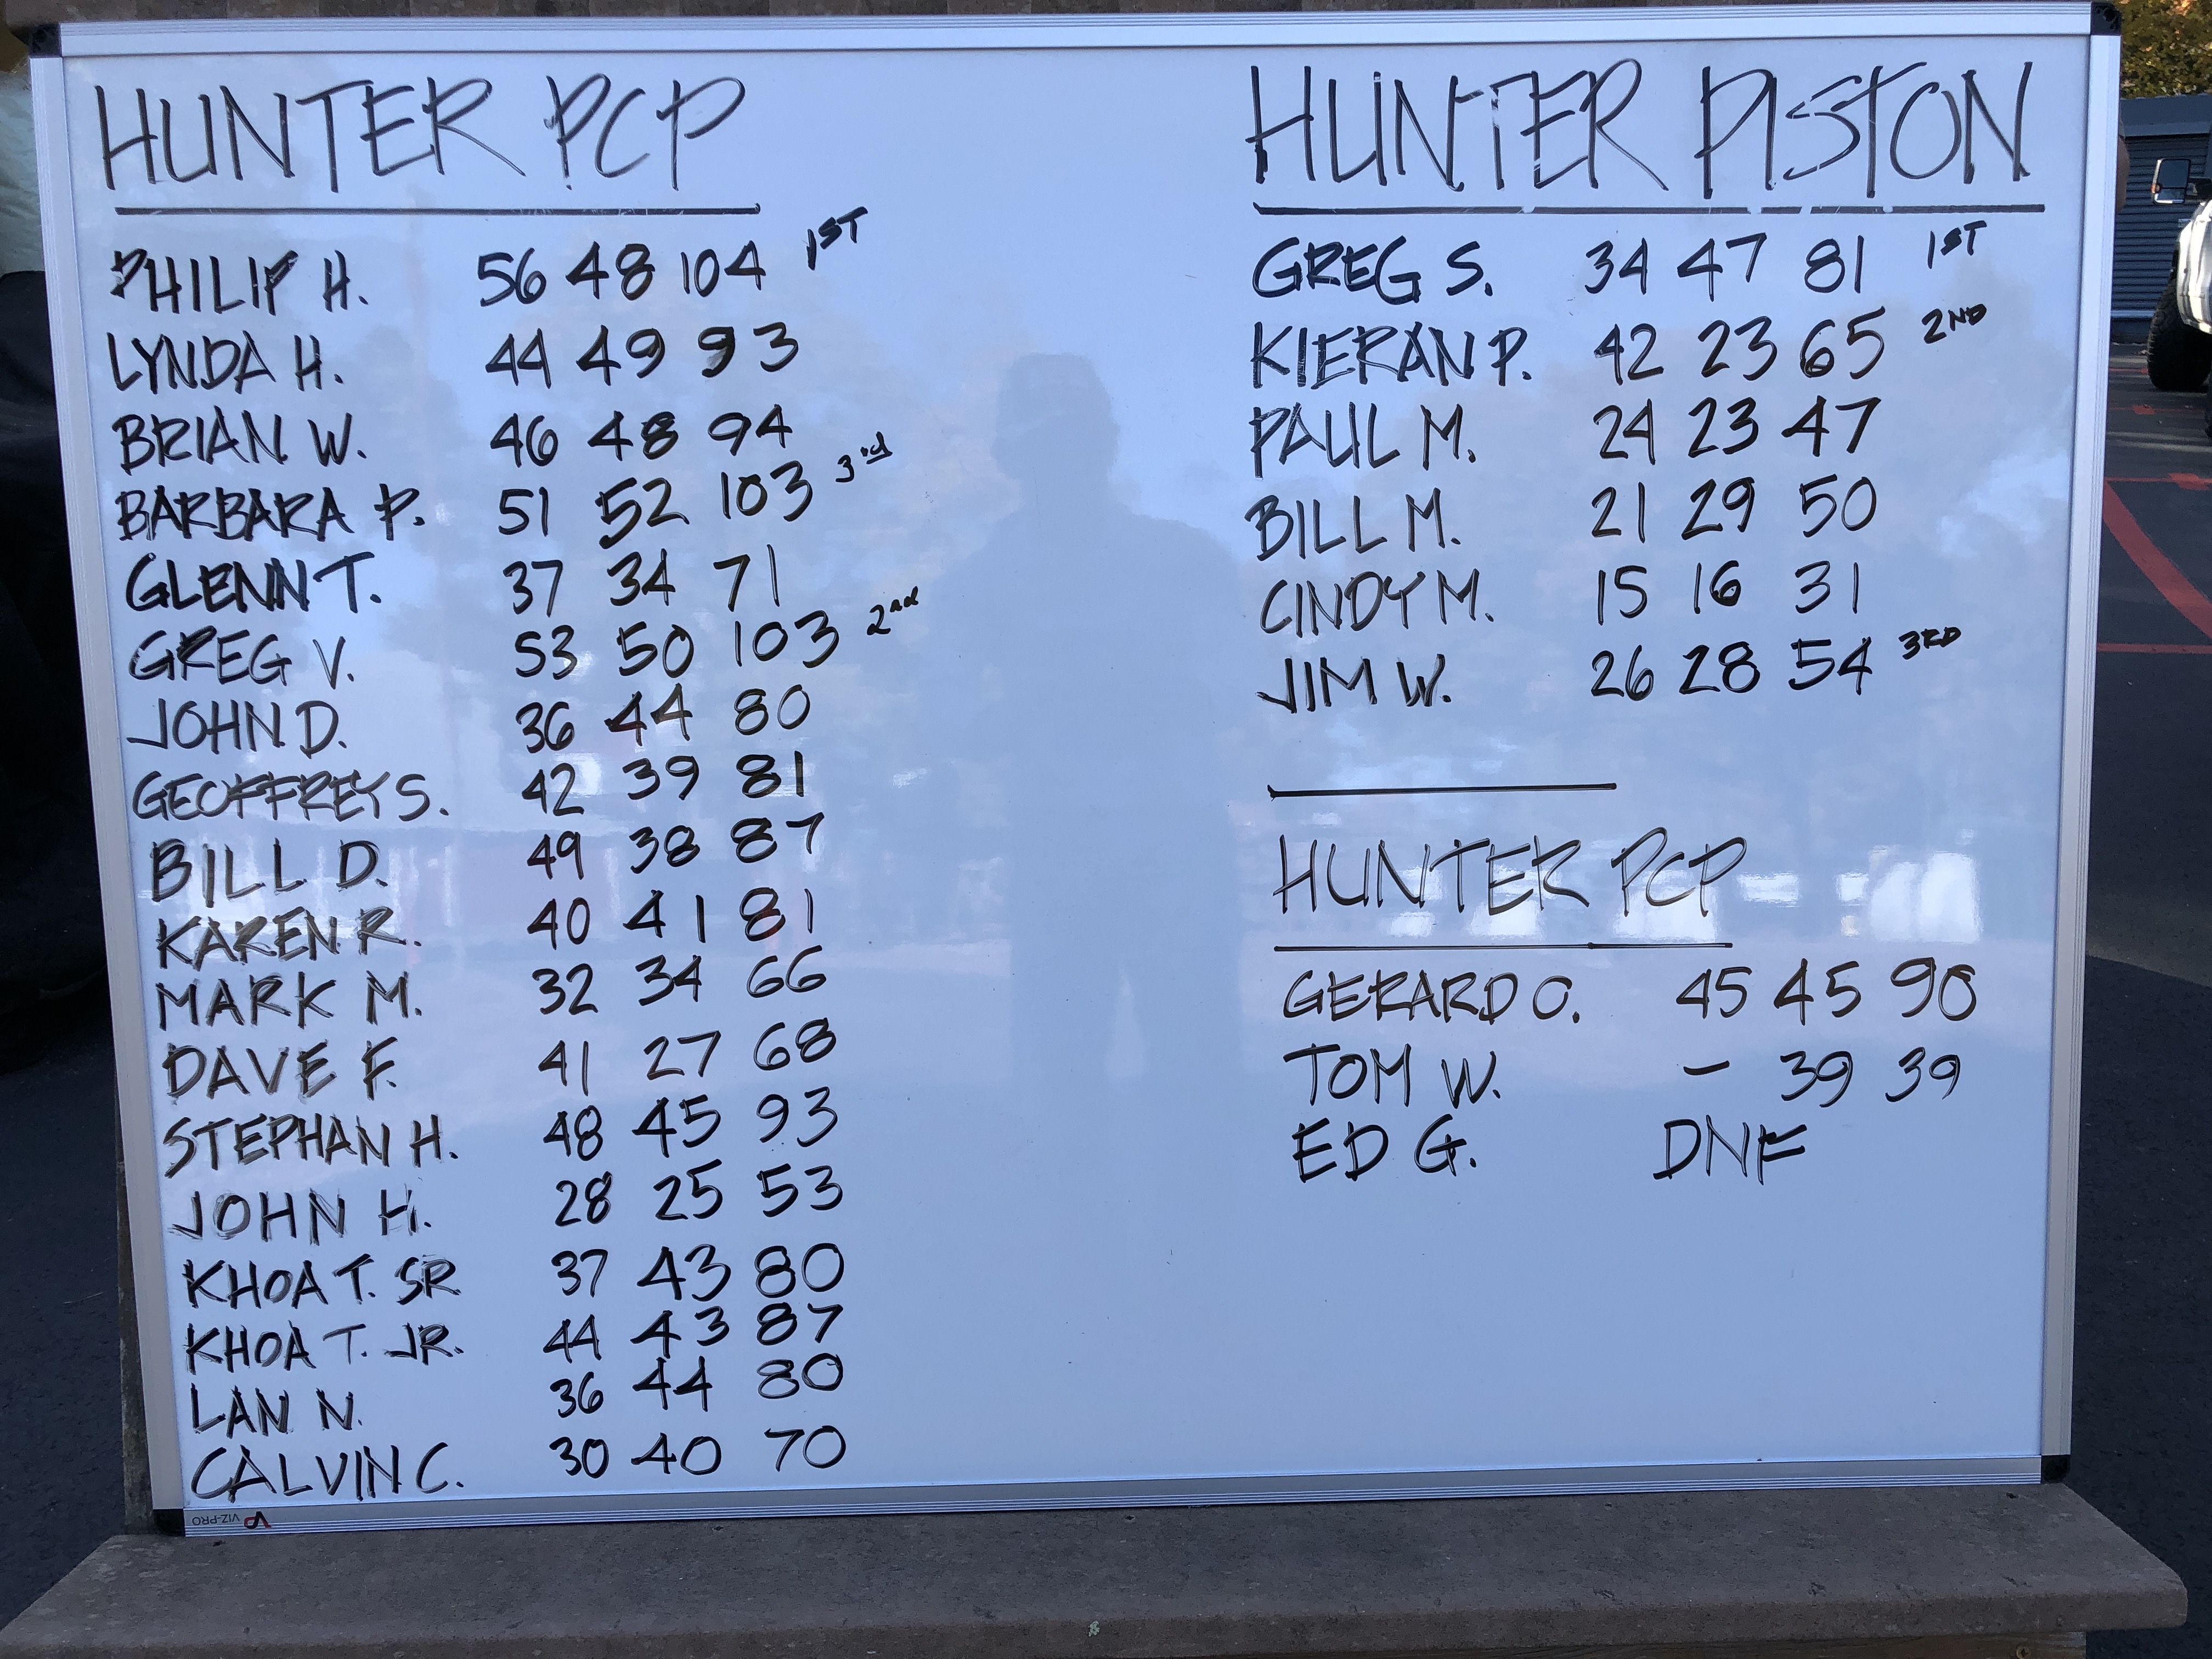 HUNTER PCP
PHILIP H. 56 48 104 1ST
LYNDA H. 44 49 93
BRIAN W. 46 48 94
BARBARA P. 51 52 103 3rd
GLENN T. 37 34 71
GREG V. 53 50 103 2nd
JOHN D. 36 44 80
GEOFFREY S. 42 39 81
BILL D. 49 38 87
KAREN R. 40 41 81
MARK M. 32 34 66
DAVE F. 41 27 68
STEPHAN H. 48 45 93
JOHN H. 28 25 53
KHOA T. SR 37 43 80
KHOA T. JR. 44 43 87
LAN N. 36 44 80
CALVIN C. 30 40 70
HUNTER PISTON
GREG S. 34 47 81 1ST
KIERAN P. 42 23 65 2ND
PAUL M. 24 23 47
BILL M. 21 29 50
CINDY M. 15 16 31
JIM W. 26 28 54 3RD
HUNTER PCP
GERARD O. 45 45 90
TOM W. – 39 39
ED G. DNF
VIZ-PRO